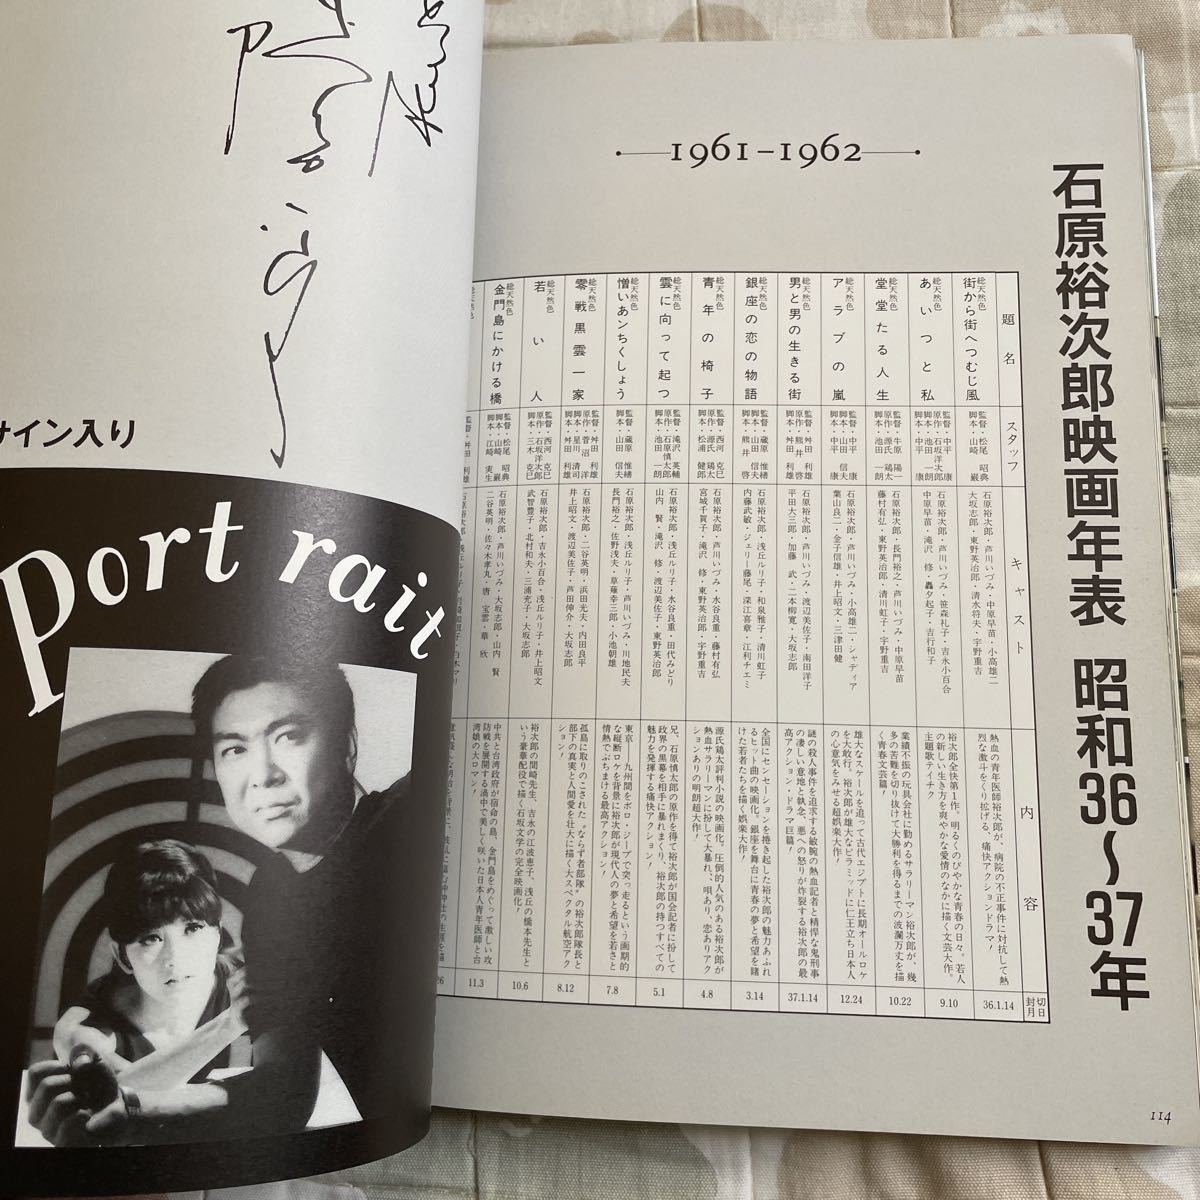 サイン入り
Port rait
1961–1962
石原裕次郎映画年表 昭和36〜37年
題名
スタッフ
キャスト
内容
封切月日
総天然色
街から街へつむじ風
監督・松尾昭典
脚本・山崎巌
石原裕次郎・芦川いづみ・中原早苗・小高雄二
大坂志郎・東野英治郎・清水将夫・宇野重吉
熱血の青年医師裕次郎が、病院の不正事件に対抗して熱
烈な激斗をくり拡げる、痛快アクションドラマ!
36.1.14
総天然色
あいつと私
監督・中平康
原作・石坂洋次郎
脚本・池田一朗
脚本・中平康
石原裕次郎・芦川いづみ・笹森礼子・吉永小百合
中原早苗・滝沢修・轟夕起子・吉行和子
裕次郎全快第1作。明るくのびやかな青春の日々。若人
の新しい生き方を爽やかな愛情のなかに描く文芸大作。
主題歌テイチク
9.10
総天然色
堂堂たる人生
監督・牛原陽一
原作・源氏鶏太
脚本・池田一朗
石原裕次郎・長門裕之・芦川いづみ・中原早苗
藤村有弘・東野英治郎・清川虹子・宇野重吉
業績不振の玩具会社に勤めるサラリーマン裕次郎が、幾
多の苦難を切り抜けて大勝利を得るまでの波瀾万丈を描
く青春文芸篇!
10.22
総天然色
アラブの嵐
監督・中平康
脚本・山田信夫
脚本・中平康
石原裕次郎・芦川いづみ・小高雄二・シャディア
葉山良二・金子信雄・井上昭文・三津田健
雄大なスケールを追って古代エジプトに長期オールロケ
を大敢行。裕次郎が雄大なピラミッドに仁王立ち日本人
の心意気をみせる超娯楽大作!
12.24
総天然色
男と男の生きる街
監督・舛田利雄
脚本・熊井啓
脚本・舛田利雄
石原裕次郎・芦川いづみ・渡辺美佐子・南田洋子
平田大三郎・加藤武・二本柳寛・大坂志郎
謎の殺人事件を追求する敏腕の熱血記者と精悍な鬼刑事
の凄しい意地と執念、悪への怒りが炸裂する裕次郎の最
高アクション・ドラマ巨篇!
37.1.14
総天然色
銀座の恋の物語
監督・蔵原惟繕
脚本・山田信夫
脚本・熊井啓
石原裕次郎・浅丘ルリ子・和泉雅子・清川虹子
内藤武敏・ジェリー藤尾・深江喜章・江利チエミ
全国にセンセーションを捲き起した裕次郎の魅力あふれ
るヒット曲の映画化。銀座を舞台に青春の夢と希望を賭
けた若者たちを描く娯楽大作!
3.14
総天然色
青年の椅子
監督・西河克己
原作・源氏鶏太
脚本・松浦健郎
石原裕次郎・芦川いづみ・水谷良重・藤村有弘
宮城千賀子・滝沢修・東野英治郎・宇野重吉
源氏鶏太評判小説の映画化。圧倒的人気のある裕次郎が
熱血サラリーマンに扮して大暴れ、唄あり、恋ありアク
ションありの明朗超大作!
4.8
総天然色
雲に向って起つ
監督・滝沢英輔
原作・石原慎太郎
脚本・池田一朗
石原裕次郎・浅丘ルリ子・水谷良重・田代みどり
山内賢・滝沢修・渡辺美佐子・東野英治郎
兄、石原慎太郎の原作を得て裕次郎が国会記者に扮して
政界の黒幕を相手に暴れまくり、裕次郎の持つすべての
魅力を発揮する痛快アクション!
5.1
総天然色
憎いあンちくしょう
監督・蔵原惟繕
脚本・山田信夫
石原裕次郎・浅丘ルリ子・芦川いづみ・川地民夫
長門裕之・佐野浅夫・草薙幸二郎・小池朝雄
東京―九州間をボロ・ジープで突っ走るという画期的
な縦断ロケを背景に裕次郎が現代人の夢と希望を若さと
情熱でぶちまける最高アクション!
7.8
総天然色
零戦黒雲一家
監督・舛田利雄
原作・萱沼洋
脚本・星川清司
脚本・舛田利雄
石原裕次郎・二谷英明・浜田光夫・内田良平
井上昭文・渡辺美佐子・芦田伸介・大坂志郎
孤島に取りのこされた“ならず者部隊”の裕次郎隊長と
部下の真実と人間愛を壮大に描く大スペクタル航空アク
ション!
8.12
総天然色
若い人
監督・西河克己
原作・石坂洋次郎
脚本・三木克巳
石原裕次郎・吉永小百合・浅丘ルリ子・井上昭文
武智豊子・北村和夫・三浦充子・大坂志郎
裕次郎の間崎先生、吉永の江波恵子、浅丘の橋本先生と
いう豪華配役で描く石坂文学の完全映画化!
10.6
総天然色
金門島にかける橋
監督・松尾昭典
脚本・山崎巌
脚本・江崎実生
石原裕次郎・芦川いづみ・大坂志郎・山内賢
二谷英明・佐々木孝丸・唐宝雲・華欣
中共と台湾政府が宿命の島、金門島をめぐって激しい攻
防戦を展開する渦中で美しく咲いた日本人青年医師と台
湾娘の大ロマン!
11.3
総天然色
監督・舛田利雄
114